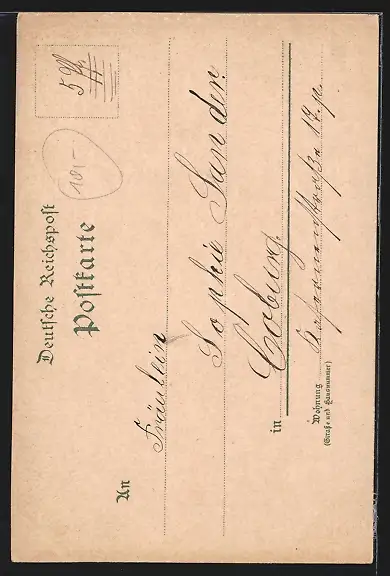 Deutsche Reichspost
Postkarte
5 Pf
10,-
An
Fräulein
Sophie Sander
in Coburg
Wohnung
(Straße und Hausnummer)
17. p.